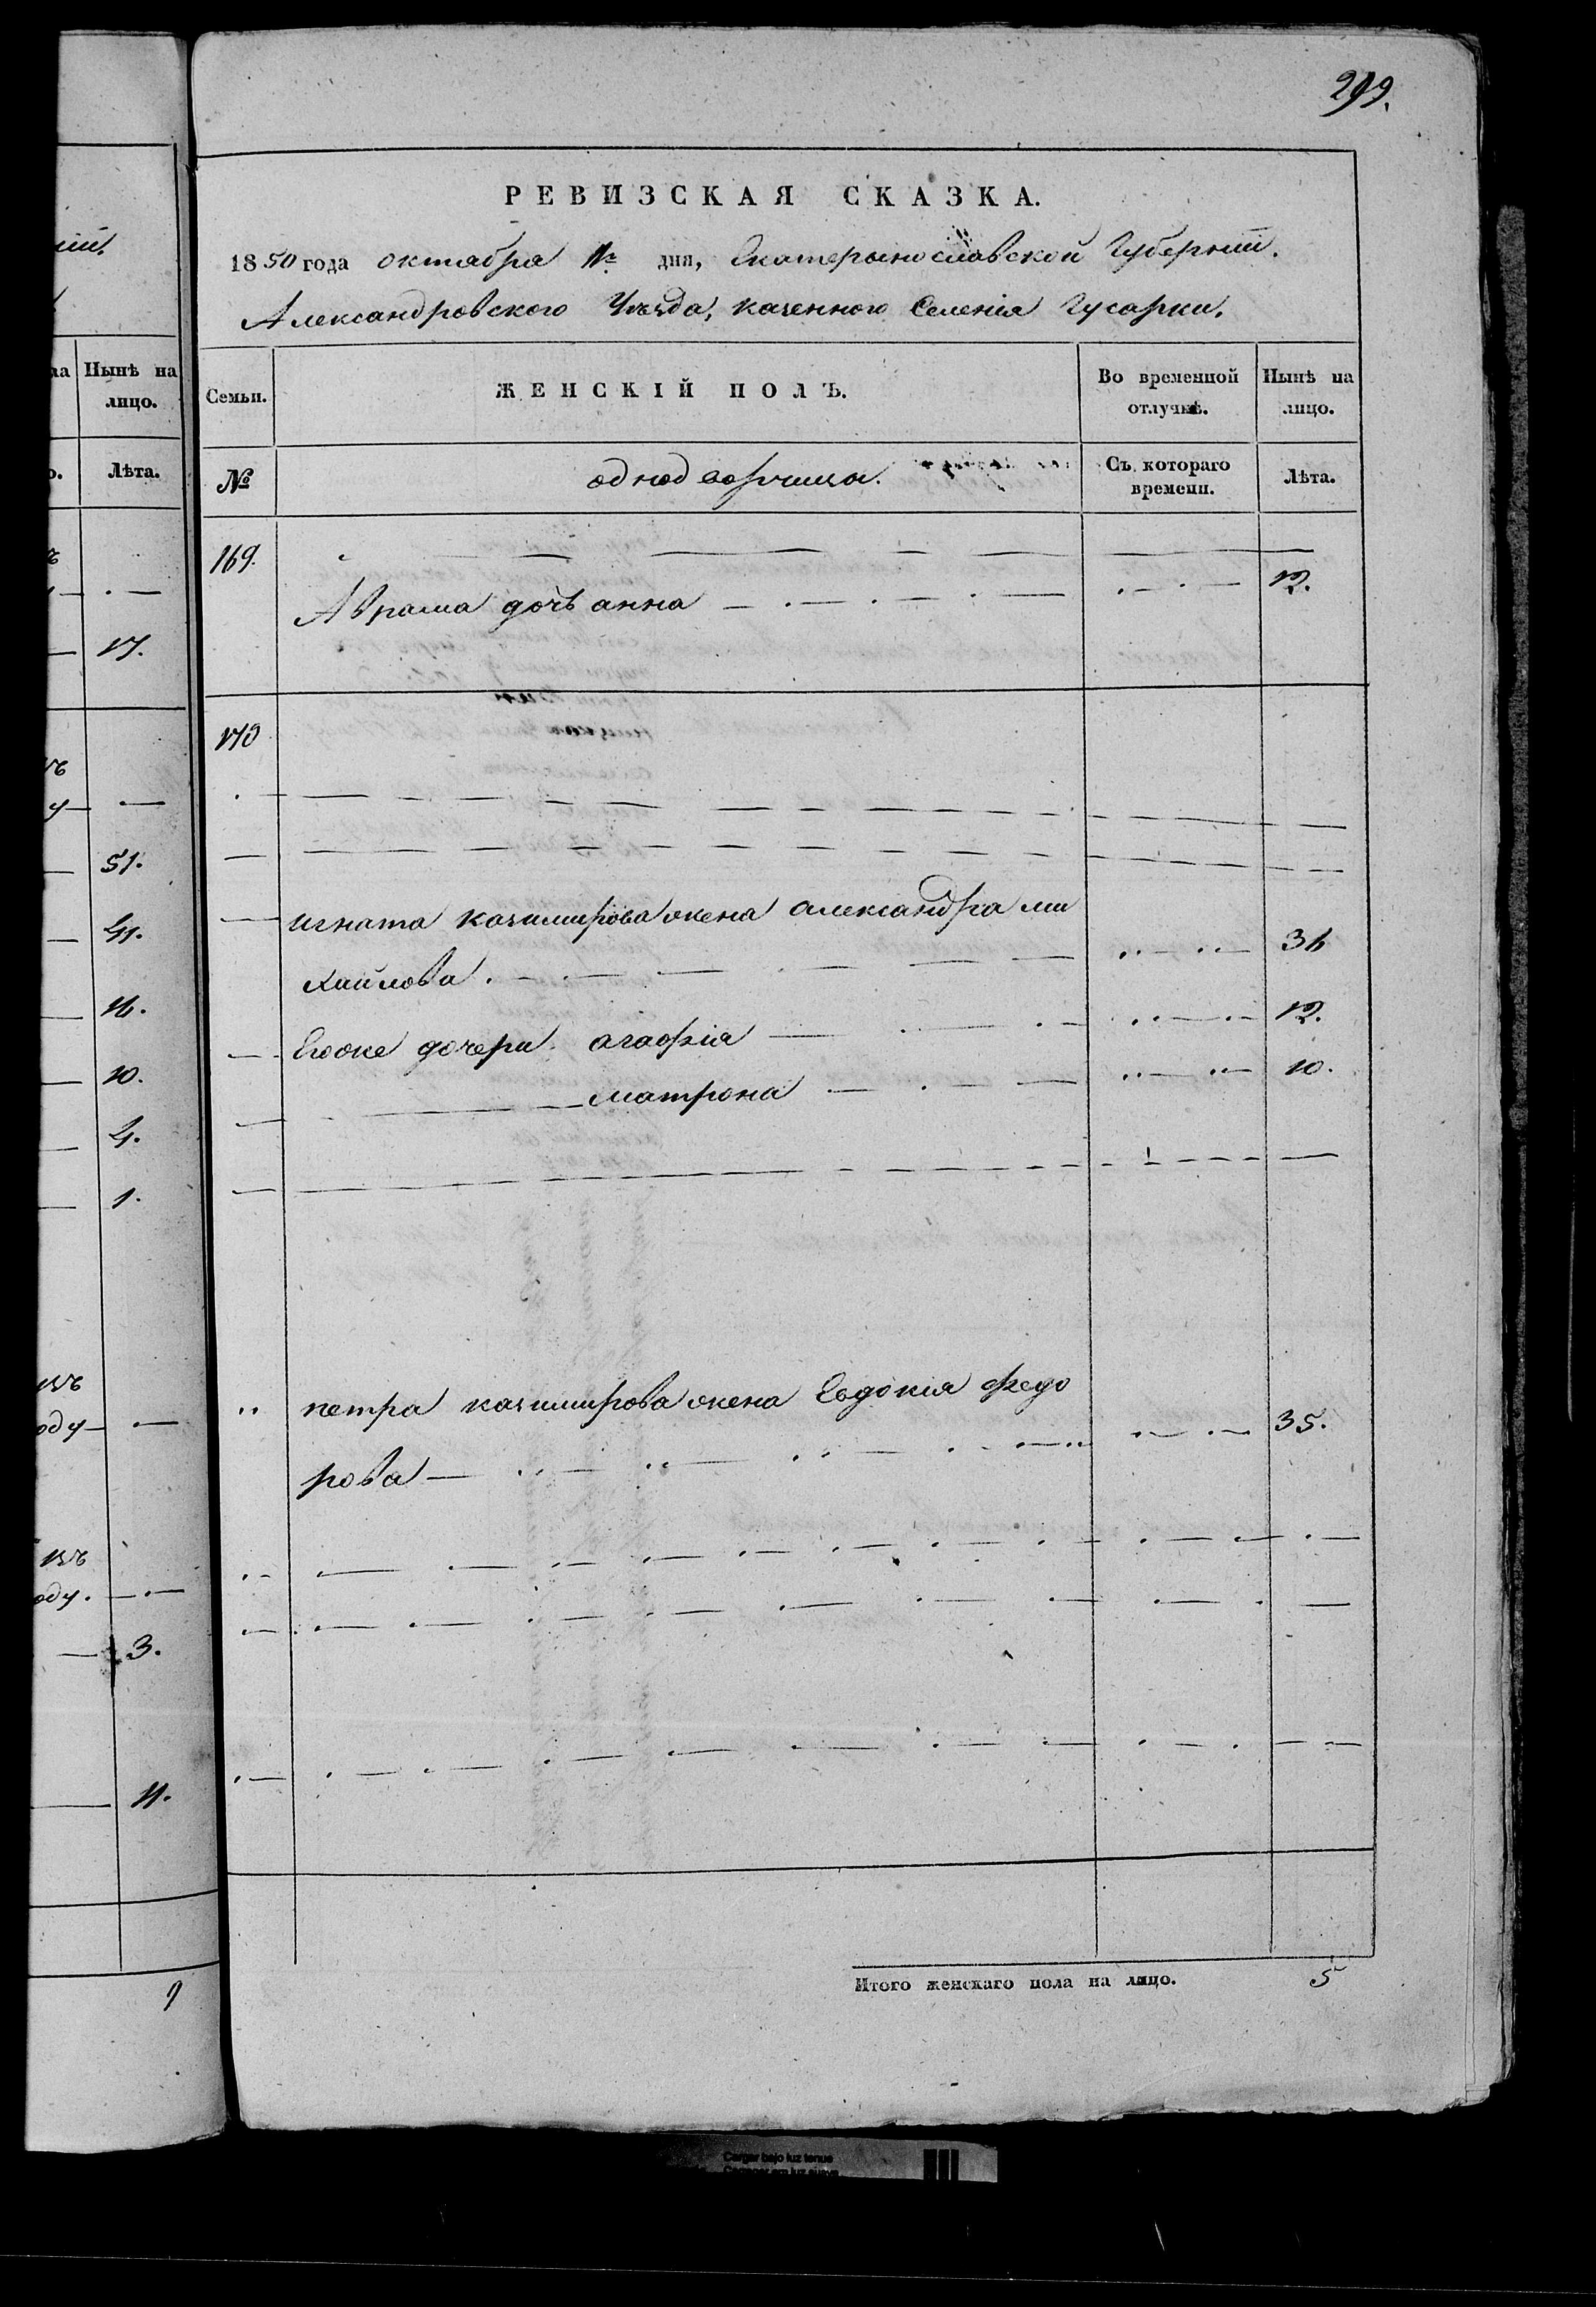 299.
РЕВИЗСКАЯ СКАЗКА.
1850 года октабра дня, Екатерынославской Губерніи.
Александровского Уѣзда, казенного Селенія Гусарки.
Семьи.
ЖЕНСКІЙ ПОЛЪ.
Во временной отлучкѣ.
Нынѣ на лицо.
№
однодворчины.
Съ котораго времени.
Лѣта.
169.
Аврама дочь анна 12.
170
Игната казимирова жена александра ми
хайлова. 36
Егоже дочери агафія 12.
матрона 10.
петра казимирова жена Евдокія федо
рова 35.
Итого женскаго пола на лицо. 5
Нынѣ на
лицо.
Лѣта.
17.
51.
41.
16.
10.
4.
1.
оду
оду.
3.
11.
9
Cargar bajo luz tenue